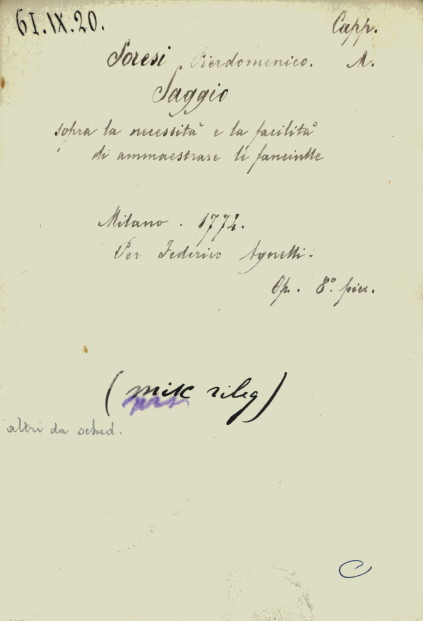 61.IX.20.
Capp.
Soresi Pierdomenico. M.
Saggio
sopra la necessità e la facilità
di ammaestrare le fanciulle
Milano. 1774.
Per Federico Agnelli.
Op. 8° picc.
(misc rileg)
altri da sched.
C